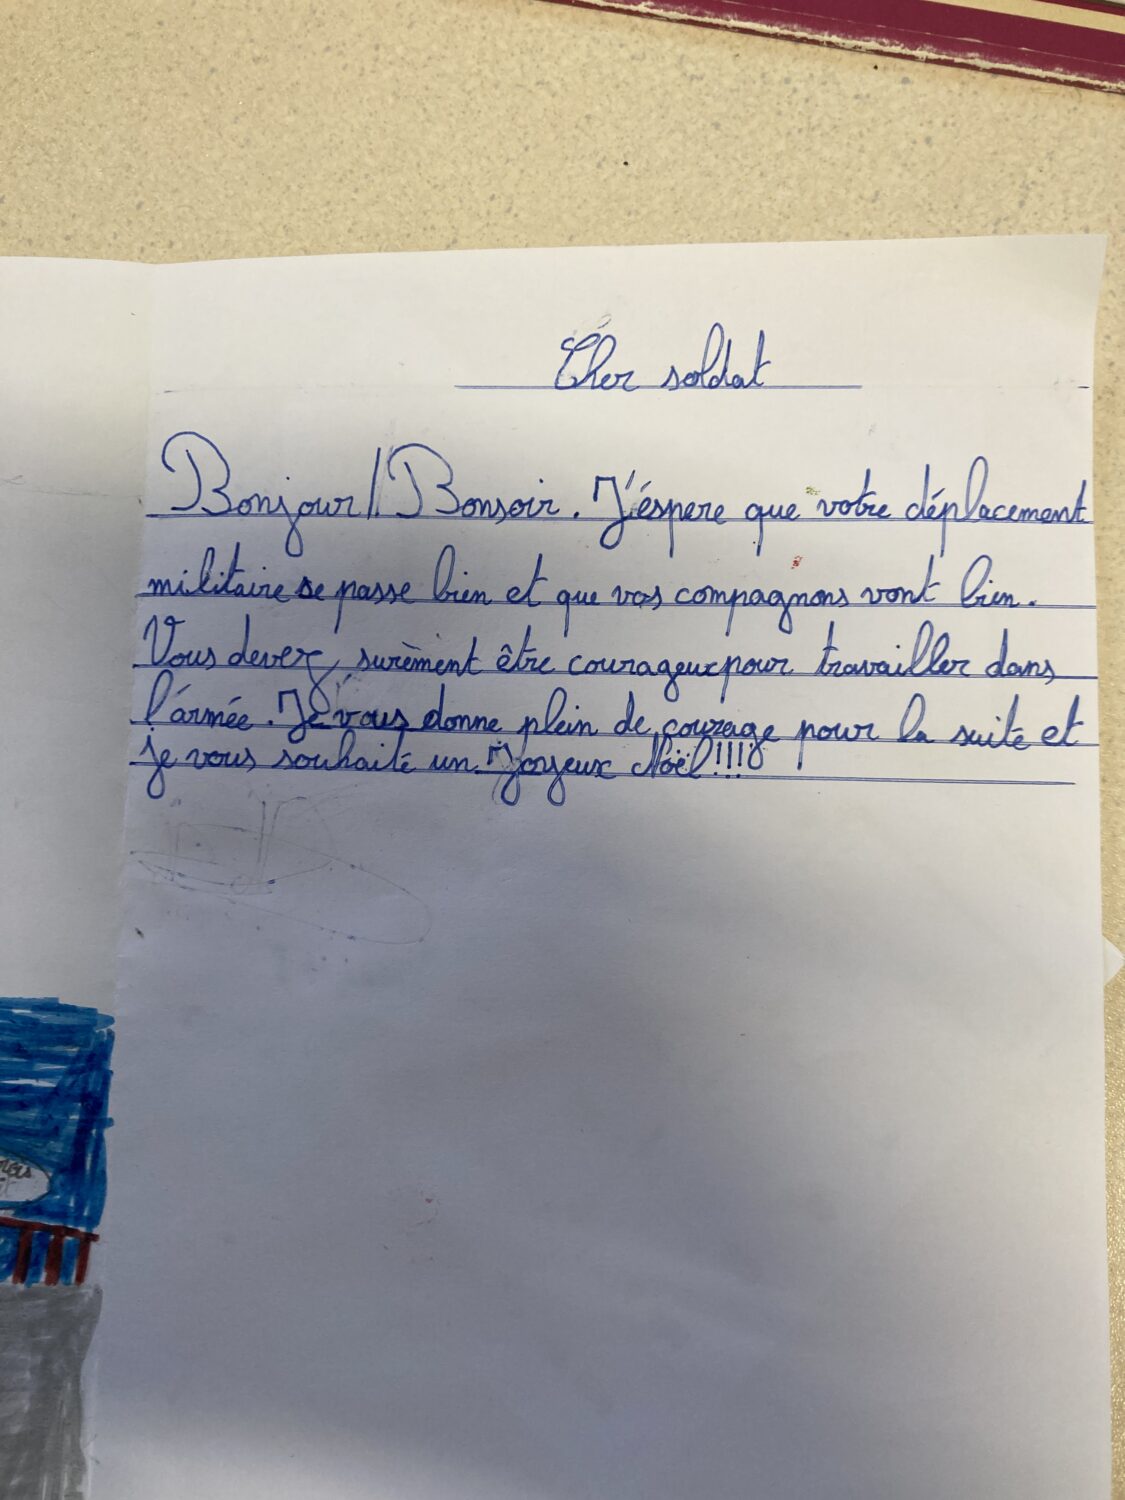 Cher soldat
Bonjour/Bonsoir. J'éspere que votre déplacement
militaire se passe bien et que vos compagnons vont bien.
Vous devez, surèment être courageux pour travailler dans
l'armée. Je vous donne plein de courage pour la suite et
je vous souhaite un Joyeux Noël!!!!